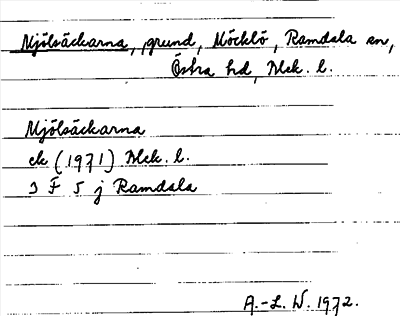 Mjölsäckarna, grund, Möcklö, Ramdala sn,
Östra hd, Blek. l.
Mjölsäckarna
ek (1971) Blek. l.
3 F 5 j Ramdala
A.-L. W. 1972.